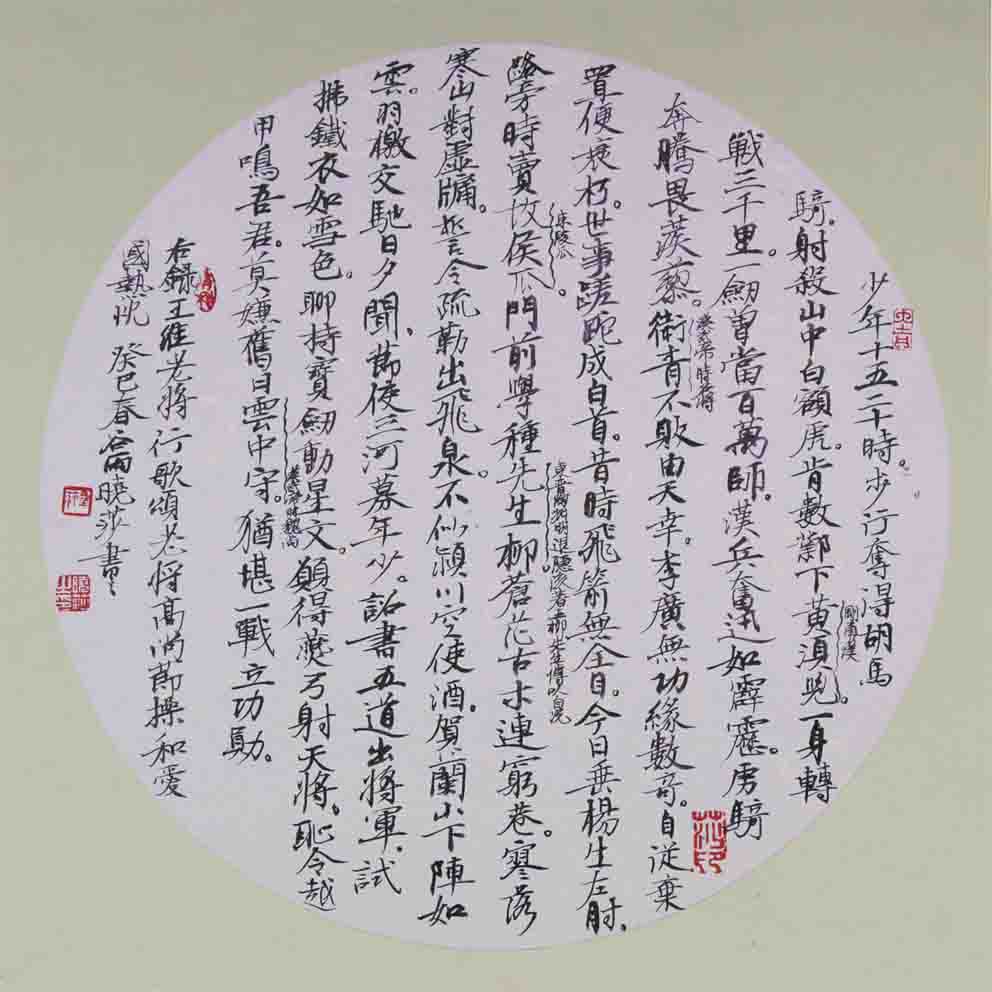 少年十五二十時。步行奪得胡馬
騎。射殺山中白額虎。肯數鄴下黃須兒。一身轉
戰三千里。一劍曾當百萬師。漢兵奮迅如霹靂。虜騎
奔騰畏蒺藜。衛青不敗由天幸。李廣無功緣數奇。自從棄
置便衰朽。世事蹉跎成白首。昔時飛箭無全目。今日垂楊生左肘。
路旁時賣故侯瓜。門前學種先生柳。蒼茫古木連窮巷。寥落
寒山對虛牖。誓令疏勒出飛泉。不似潁川空使酒。賀蘭山下陣如
雲。羽檄交馳日夕聞。節使三河募年少。詔書五道出將軍。試
拂鐵衣如雪色。聊持寶劍動星文。願得燕弓射天將。恥令越
甲鳴吾君。莫嫌舊日雲中守。猶堪一戰立功勛。
右録王維老將行歌頌老將高尚節操和愛
國熱忱 癸巳春 雨曉莎書